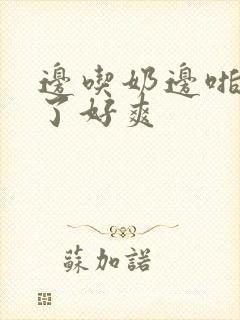 邊喫奶邊啪
了好爽
蘇加諾